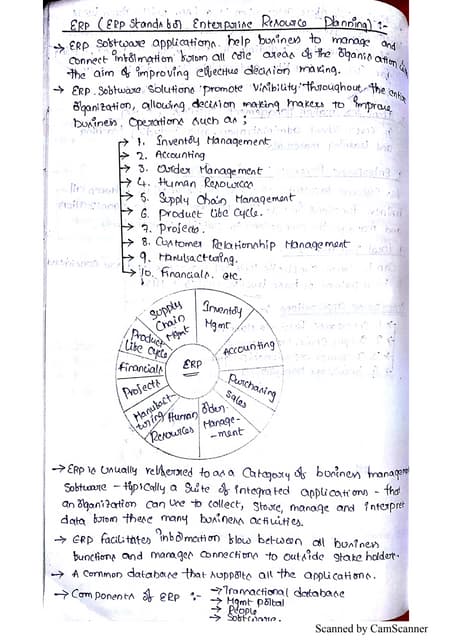 ERP (ERP Stands for) Enterprise Resource Planning) :-
→ ERP Software applications. help business to manage and
connect information from all core areas of the organisation with
the aim of improving effective decision making.
→ ERP. Software Solutions promote visibility throughout the entire
organization, allowing decision making makers to improve
business. Operations such as;
→ 1. Inventory Management
→ 2. Accounting
→ 3. Order Management
→ 4. Human Resources
→ 5. Supply Chain Management
→ 6. Product Life Cycle.
→ 7. Projects.
→ 8. Customer Relationship Management
→ 9. Manufacturing.
→ 10. Financials. etc.
Supply
Chain
Mgmt
Inventory
Mgmt.
Product
Life Cycle
Accounting
Financials
ERP
Projects
Purchasing
Sales
Manufact
-uring
Human
Resources
Order
Manage
-ment
→ ERP is usually referred to as a Category of business management
Software - typically a Suite of integrated applications - that
an organization can use to collect, store, manage and interpret
data from these many business activities.
→ ERP facilitates information flow between all business
functions and manages connections to outside stake holders.
→ A Common database that supports all the applications.
→ Components of ERP :- → Transactional database
→ Mgmt portal
→ People
→ Software.
Scanned by CamScanner